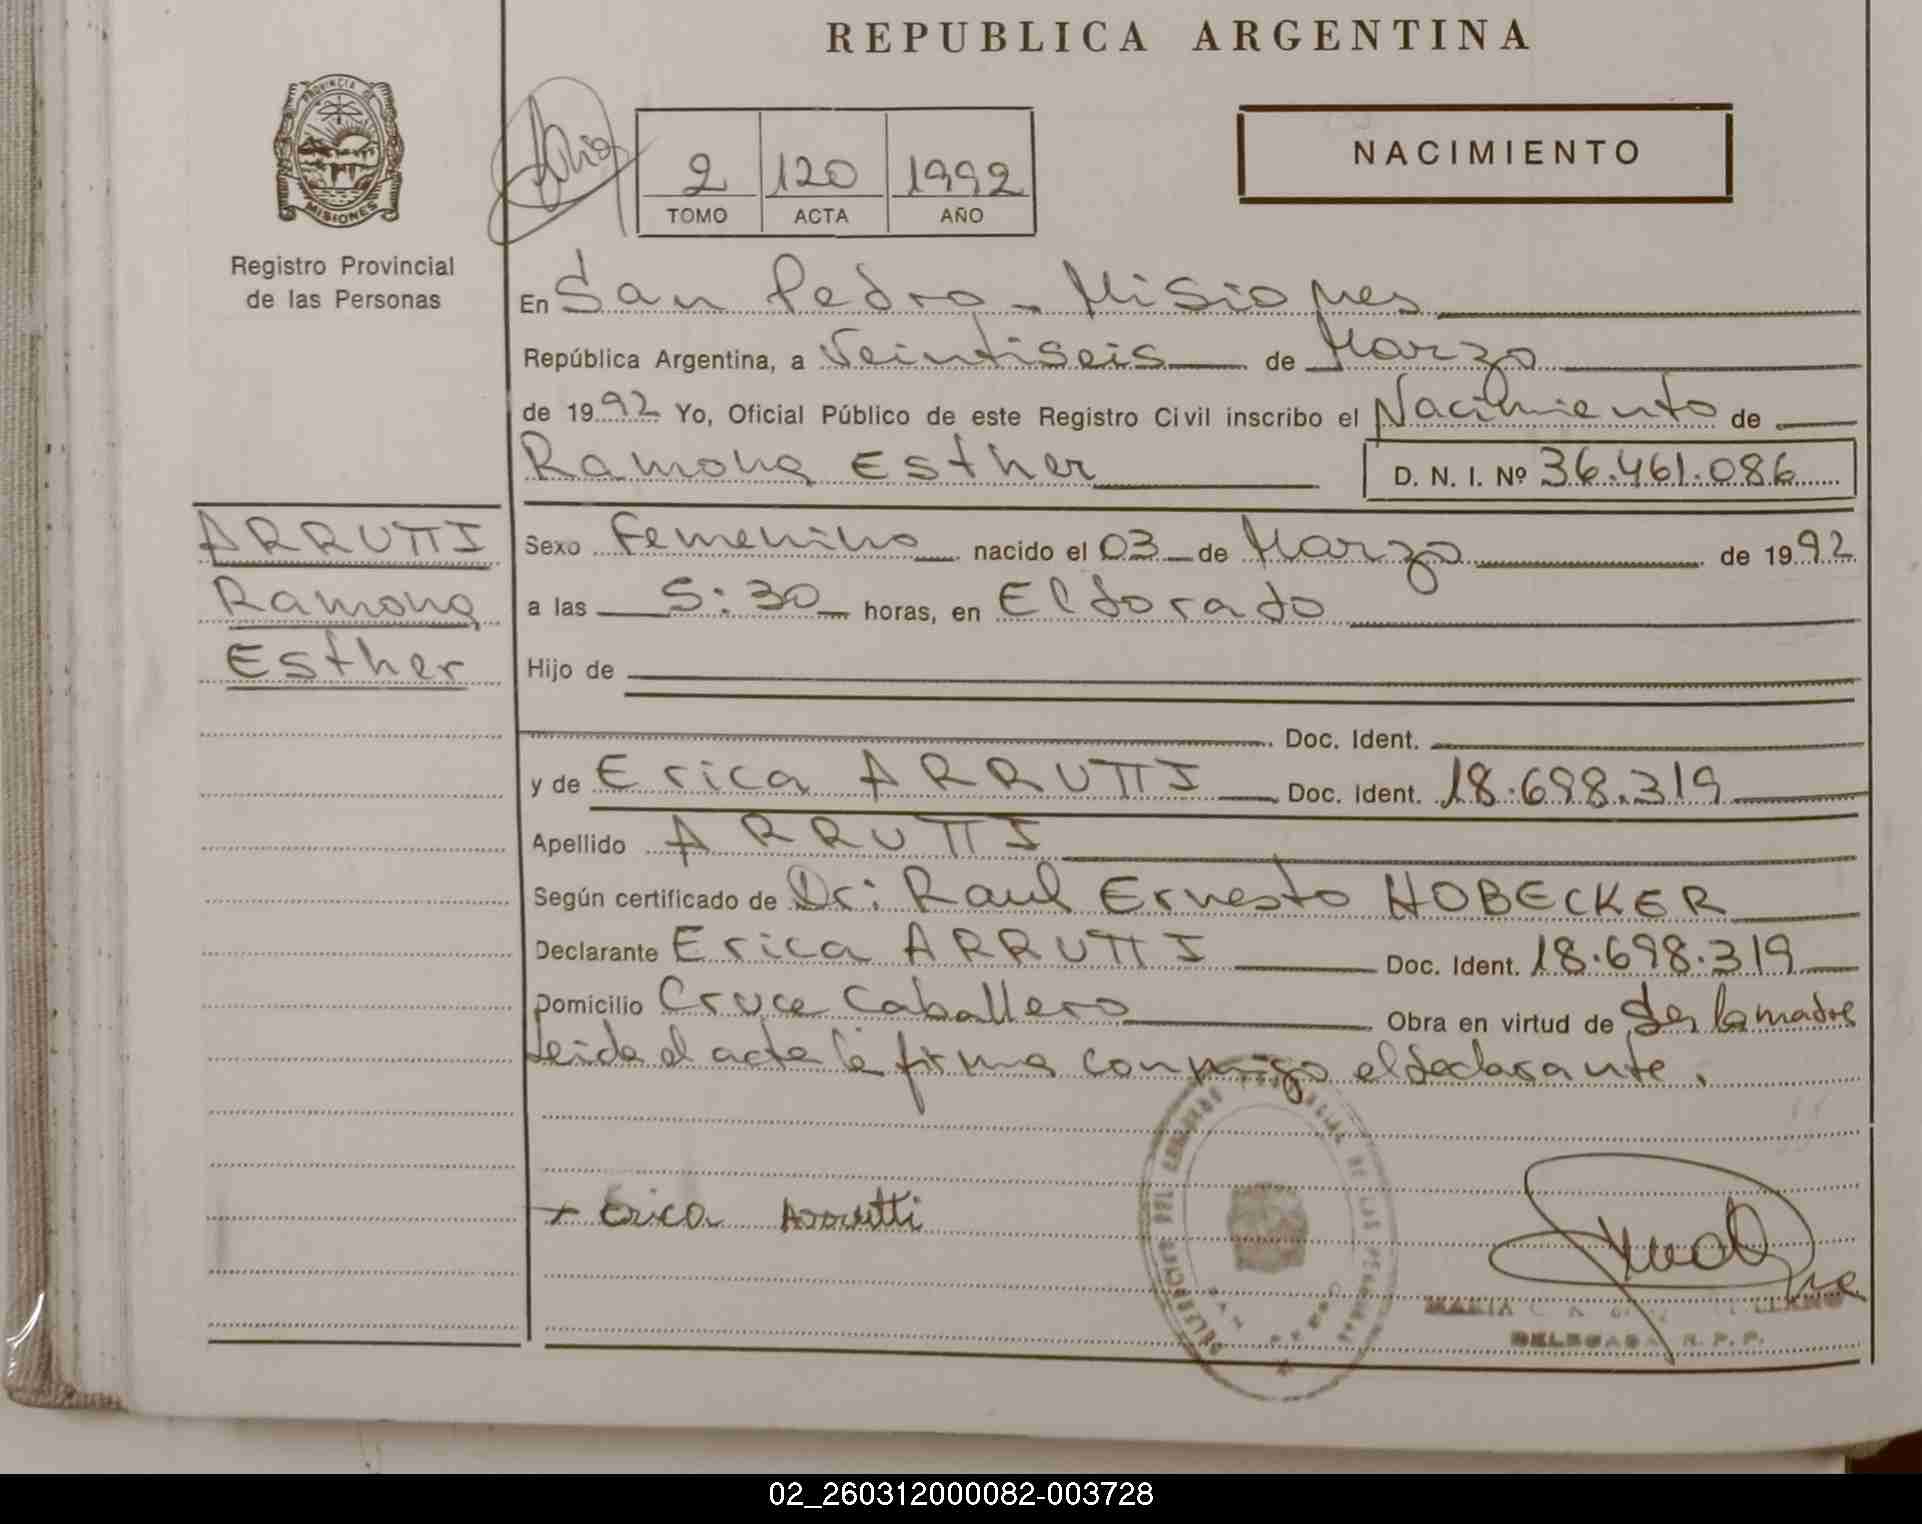 REPUBLICA ARGENTINA
PROVINCIA DE
MISIONES
Registro Provincial
de las Personas
2 120 1992
TOMO ACTA AÑO
NACIMIENTO
En San Pedro - Misiones
República Argentina, a Veintiseis de Marzo
de 1992 Yo, Oficial Público de este Registro Civil inscribo el Nacimiento de
Ramona Esther D. N. I. Nº 36.461.086
ARRUTTI
Ramona
Esther
Sexo Femenino nacido el 03 de Marzo de 1992
a las 5:30 horas, en Eldorado
Hijo de
Doc. Ident.
y de Erica ARRUTTI Doc. Ident. 18.698.319
Apellido ARRUTTI
Según certificado de Dr: Raul Ernesto HOBECKER
Declarante Erica ARRUTTI Doc. Ident. 18.698.319
Domicilio Cruce Caballero Obra en virtud de ser la madre
Leida el acta la firma conmigo el declarante.
+ Erica Arrutti
DE LAS PERSONAS
SAN PEDRO
MARIA
DELEGADA R. P. P.
02_260312000082-003728